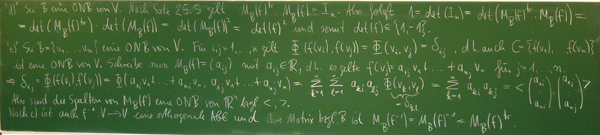 d) Sei B eine ONB von V. Nach Satz 25.5 gilt M_B(f)^tr · M_B(f) = I_n. Also folgt 1 = det(I_n) = det(M_B(f)^tr · M_B(f)) =
= det(M_B(f)^tr) · det(M_B(f)) = det(M_B(f))² = det(f)² und somit det(f) ∈ {1,-1}.
e) Sei B = {v_1, ..., v_n} eine ONB von V. Für i,j = 1,...,n gilt Φ(f(v_i), f(v_j)) = Φ(v_i, v_j) = δ_ij, d.h. auch C = {f(v_1), ..., f(v_n)}
ist eine ONB von V. Schreibe nun M_B(f) = (a_ij) mit a_ij ∈ ℝ, d.h. es gelte f(v_j) = a_1j v_1 + ... + a_nj v_n für j = 1,...,n.
⇒ δ_ij = Φ(f(v_i), f(v_j)) = Φ(a_1i v_1 + ... + a_ni v_n, a_1j v_1 + ... + a_nj v_n) = Σ Σ a_ki a_lj Φ(v_k, v_l) = Σ a_ki a_kj = <(a_1i ⋮ a_ni), (a_1j ⋮ a_nj)>
Also sind die Spalten von M_B(f) eine ONB von ℝ^n bzgl. < , >.
Nach c) ist auch f^-1: V → V eine orthogonale Abb und ihre Matrix bzgl. B ist M_B(f^-1) = M_B(f)^-1 = M_B(f)^tr